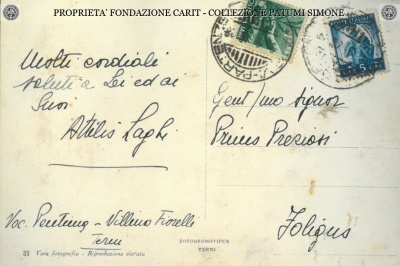 PROPRIETA' FONDAZIONE CARIT - COLLEZIONE PATUMI SIMONE
Molti cordiali
saluti a Lei ed ai
Suoi
Attilio Laghi
Voc. Pentima - Villino Fiorelli
Terni
Gent/mo Signor
Primo Preziosi
Foligno
FOTOCROMOTIPIA
TERNI
23 Vera fotografia - Riproduzione vietata